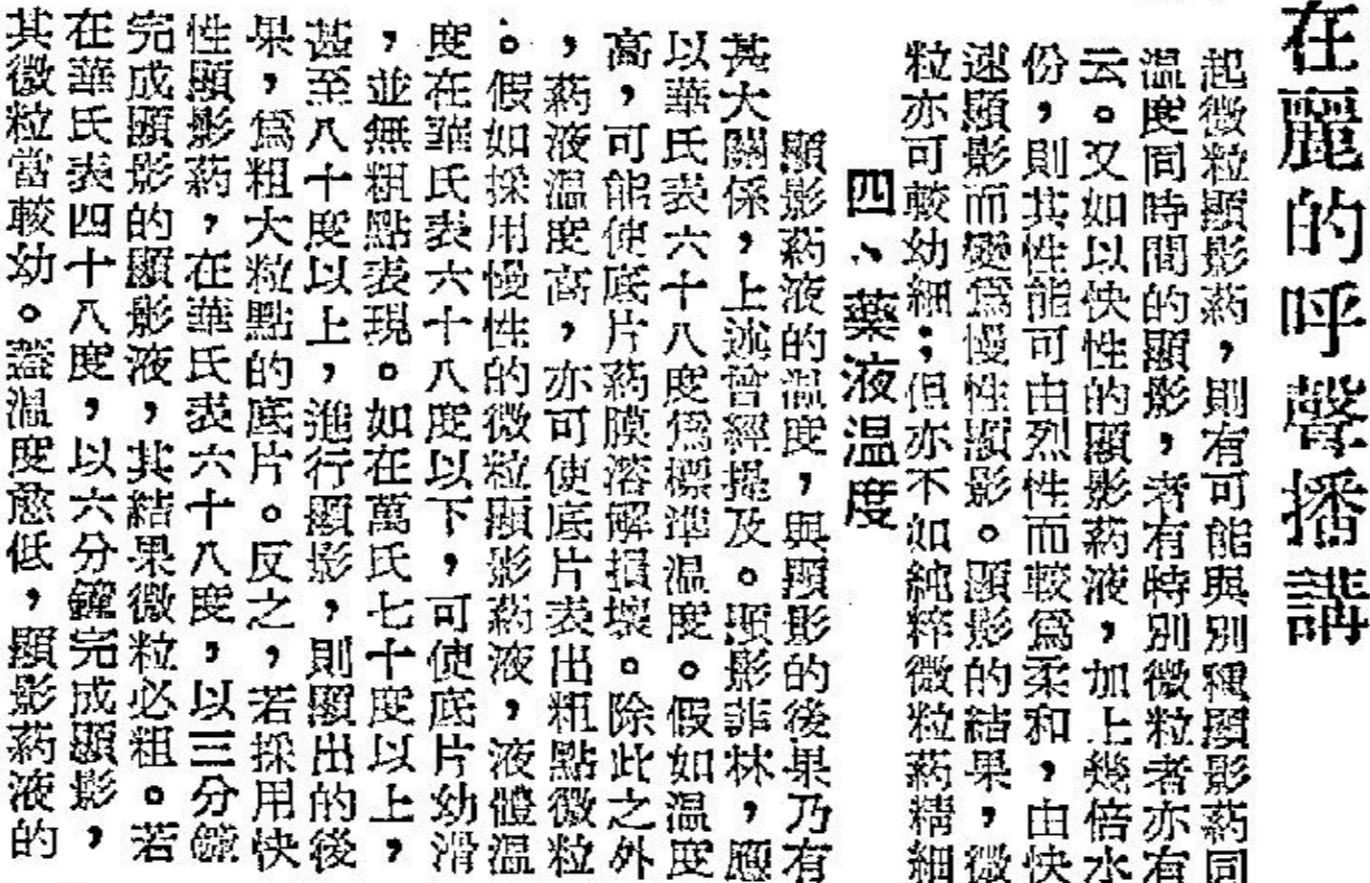 在麗的呼聲播講
起微粒顯影葯，則有可能與別種顯影葯同
溫度同時間的顯影，者有特別微粒者亦有
云。又如以快性的顯影葯液，加上幾倍水
份，則其性能可由烈性而較爲柔和，由快
速顯影而變爲慢性顯影。顯影的結果，微
粒亦可較幼細；但亦不如純粹微粒葯精細
四、藥液温度
顯影葯液的温度，與顯影的後果乃有
甚大關係，上述曾經提及。顯影菲林，應
以華氏表六十八度爲標準温度。假如温度
高，可能使底片葯膜溶解損壞。除此之外
，葯液温度高，亦可使底片表出粗點微粒
。假如採用慢性的微粒顯影葯液，液體温
度在華氏表六十八度以下，可使底片幼滑
，並無粗點表現。如在萬氏七十度以上，
甚至八十度以上，進行顯影，則顯出的後
果，爲粗大粒點的底片。反之，若採用快
性顯影葯，在華氏表六十八度，以三分鐘
完成顯影的顯影液，其結果微粒必粗。若
在華氏表四十八度，以六分鐘完成顯影，
其微粒當較幼。蓋温度愈低，顯影葯液的